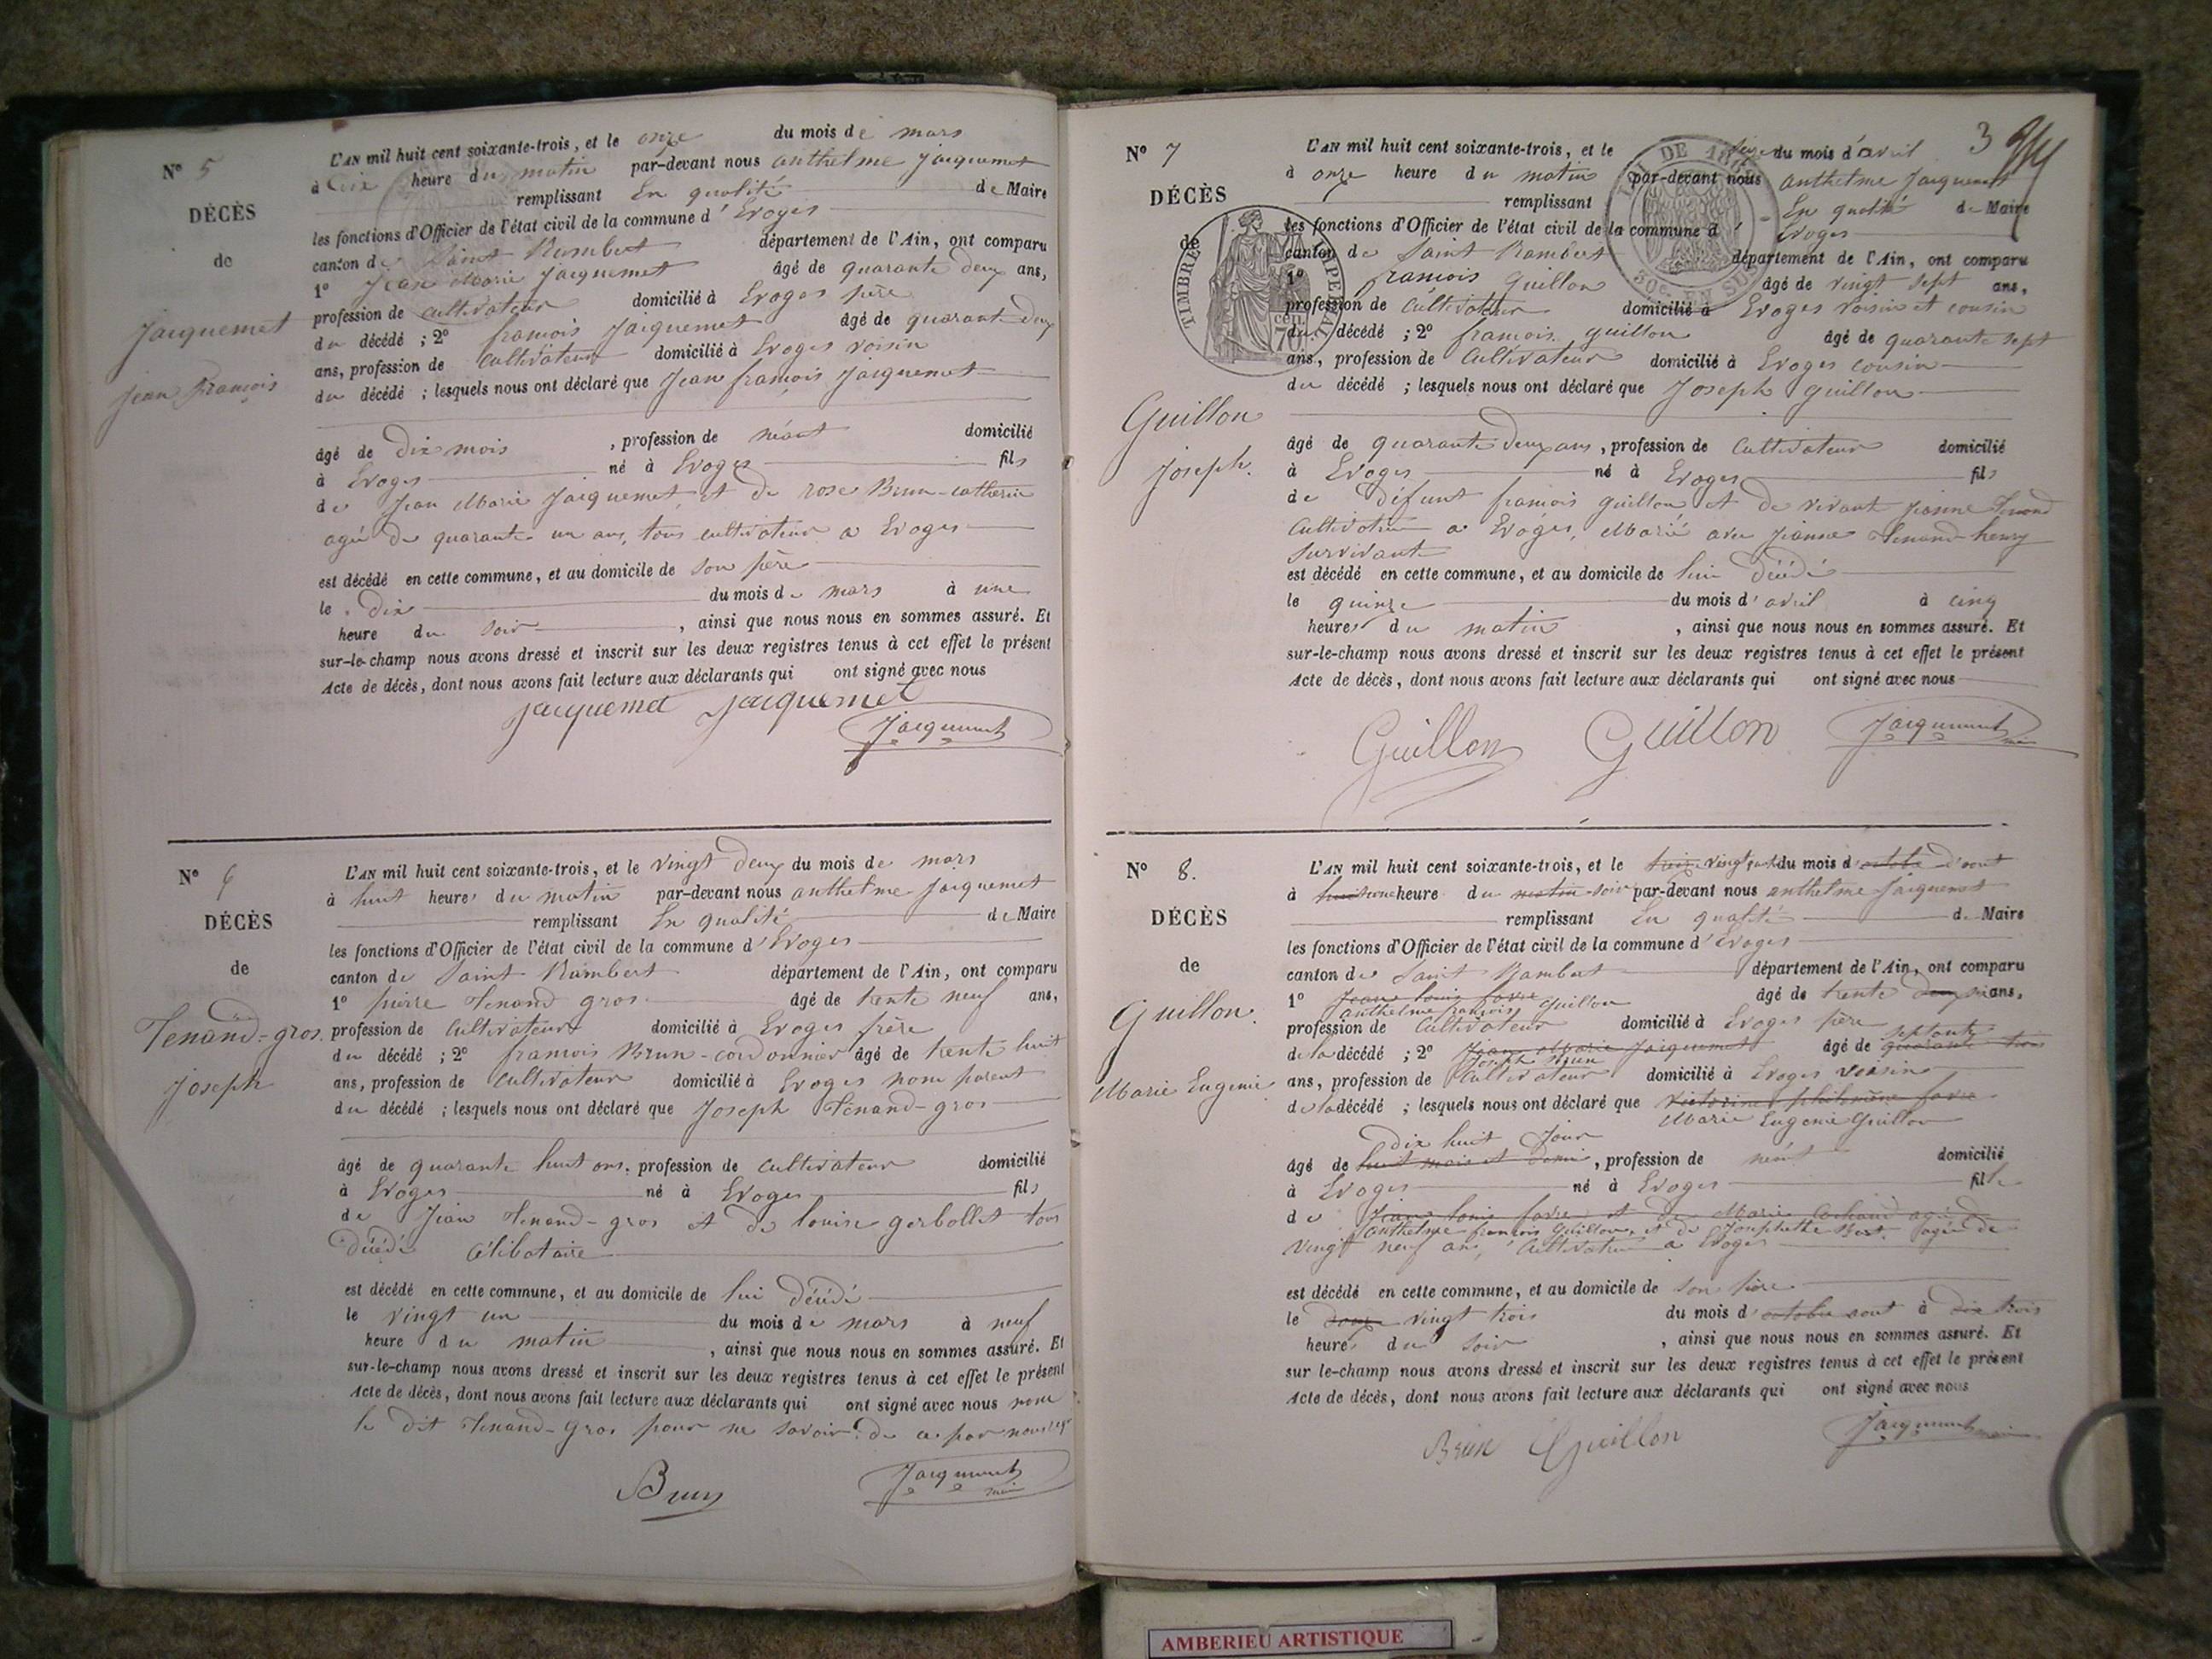 N° 5
DÉCÈS
de
Jacquemet
Jean François
L'AN mil huit cent soixante-trois, et le onze du mois de mars
à heure du matin par-devant nous anthelme jacquemet
remplissant En qualité de Maire
les fonctions d'Officier de l'état civil de la commune d'Evoges
canton de Saint Rambert département de l'Ain, ont comparu
1° Jean Marie Jacquemet âgé de quarante deux ans,
profession de cultivateur domicilié à Evoges père
du décédé ; 2° francois Jacquemet âgé de quarante deux
ans, profession de Cultivateur domicilié à Evoges voisin
du décédé ; lesquels nous ont déclaré que Jean françois Jacquemet
âgé de Dix mois , profession de néant domicilié
à Evoges né à Evoges fils
de Jean Marie Jacquemet, et de rose Brun-catherin
agée de quarante un ans, tous cultivateur a Evoges
est décédé en cette commune, et au domicile de Son père
le Dix du mois de mars à une
heure du Soir , ainsi que nous nous en sommes assuré. Et
sur-le-champ nous avons dressé et inscrit sur les deux registres tenus à cet effet le présent
Acte de décès, dont nous avons fait lecture aux déclarants qui ont signé avec nous
jacquemet Jacquemet
Jacquemet
N° 6
DÉCÈS
de
Tenand-gros.
joseph
L'AN mil huit cent soixante-trois, et le vingt deux du mois de mars
à huit heures du matin par-devant nous anthelme Jacquemet
remplissant En qualité de Maire
les fonctions d'Officier de l'état civil de la commune d'Evoges
canton de Saint Rambert département de l'Ain, ont comparu
1° pierre Tenand gros âgé de trente neuf ans,
profession de Cultivateur domicilié à Evoges frère
du décédé ; 2° francois Brun-cordonnier âgé de trente huit
ans, profession de Cultivateur domicilié à Evoges non parent
du décédé ; lesquels nous ont déclaré que Joseph Tenand-gros
âgé de quarante huit ans, profession de Cultivateur domicilié
à Evoges né à Evoges fils
de Jean Tenand-gros et de louise gerbollet tous
Décédé Célibataire
est décédé en cette commune, et au domicile de lui Décédé
le vingt un du mois de mars à neuf
heure du matin , ainsi que nous nous en sommes assuré. Et
sur-le-champ nous avons dressé et inscrit sur les deux registres tenus à cet effet le présent
Acte de décès, dont nous avons fait lecture aux déclarants qui ont signé avec nous non
le dit Tenand-gros pour ne savoir de ce par nous
Brun
Jacquemet maire
3
N° 7
DÉCÈS
de
TIMBRE IMPERIAL
70
Guillon
joseph.
L'AN mil huit cent soixante-trois, et le seize du mois d'avril
à onze heure du matin par-devant nous anthelme Jacquemet
remplissant En qualité de Maire
les fonctions d'Officier de l'état civil de la commune d'Evoges
canton de Saint Rambert département de l'Ain, ont comparu
1° francois Guillon âgé de vingt sept ans,
profession de Cultivateur domicilié à Evoges voisin et cousin
du décédé ; 2° francois guillon âgé de quarante sept
ans, profession de Cultivateur domicilié à Evoges cousin
du décédé ; lesquels nous ont déclaré que Joseph Guillon
âgé de quarante deux ans, profession de Cultivateur domicilié
à Evoges né à Evoges fils
de Défunt francois guillon et de vivant jeanne Tenand
Cultivatrice a Evoges, Marié avec jeanne Tenand-henry
Survivante
est décédé en cette commune, et au domicile de lui Décédé
le quinze du mois d'avril à cinq
heures du matin , ainsi que nous nous en sommes assuré. Et
sur-le-champ nous avons dressé et inscrit sur les deux registres tenus à cet effet le présent
Acte de décès, dont nous avons fait lecture aux déclarants qui ont signé avec nous
Guillon Guillon Jacquemet maire
N° 8.
DÉCÈS
de
Guillon.
Marie Eugenie
L'AN mil huit cent soixante-trois, et le treize vingt du mois d'octobre d'aout
à heure du matin soir par-devant nous anthelme Jacquemet
remplissant En qualité de Maire
les fonctions d'Officier de l'état civil de la commune d'Evoges
canton de Saint Rambert département de l'Ain, ont comparu
1° Jean louis favre âgé de trente ans,
anthelme francois Guillon
profession de Cultivateur domicilié à Evoges père
septante
de la décédé ; 2° Jean Marie Jacquemet âgé de quarante trois
Joseph
ans, profession de Cultivateur domicilié à Evoges voisin
de la décédé ; lesquels nous ont déclaré que Victorine philomène favre
Marie Eugenie Guillon
Dix huit Jour
âgé de huit mois et demi , profession de néant domicilié
à Evoges né à Evoges fille
de Jean louis favre et de Marie agée de
anthelme francois Guillon, et de Josephette agée de
vingt neuf ans, Cultivateur a Evoges
est décédé en cette commune, et au domicile de Son père
le douze vingt trois du mois d'octobre aout à dix trois
heures du Soir , ainsi que nous nous en sommes assuré. Et
sur le-champ nous avons dressé et inscrit sur les deux registres tenus à cet effet le présent
Acte de décès, dont nous avons fait lecture aux déclarants qui ont signé avec nous
Brun Guillon Jacquemet maire
AMBERIEU ARTISTIQUE